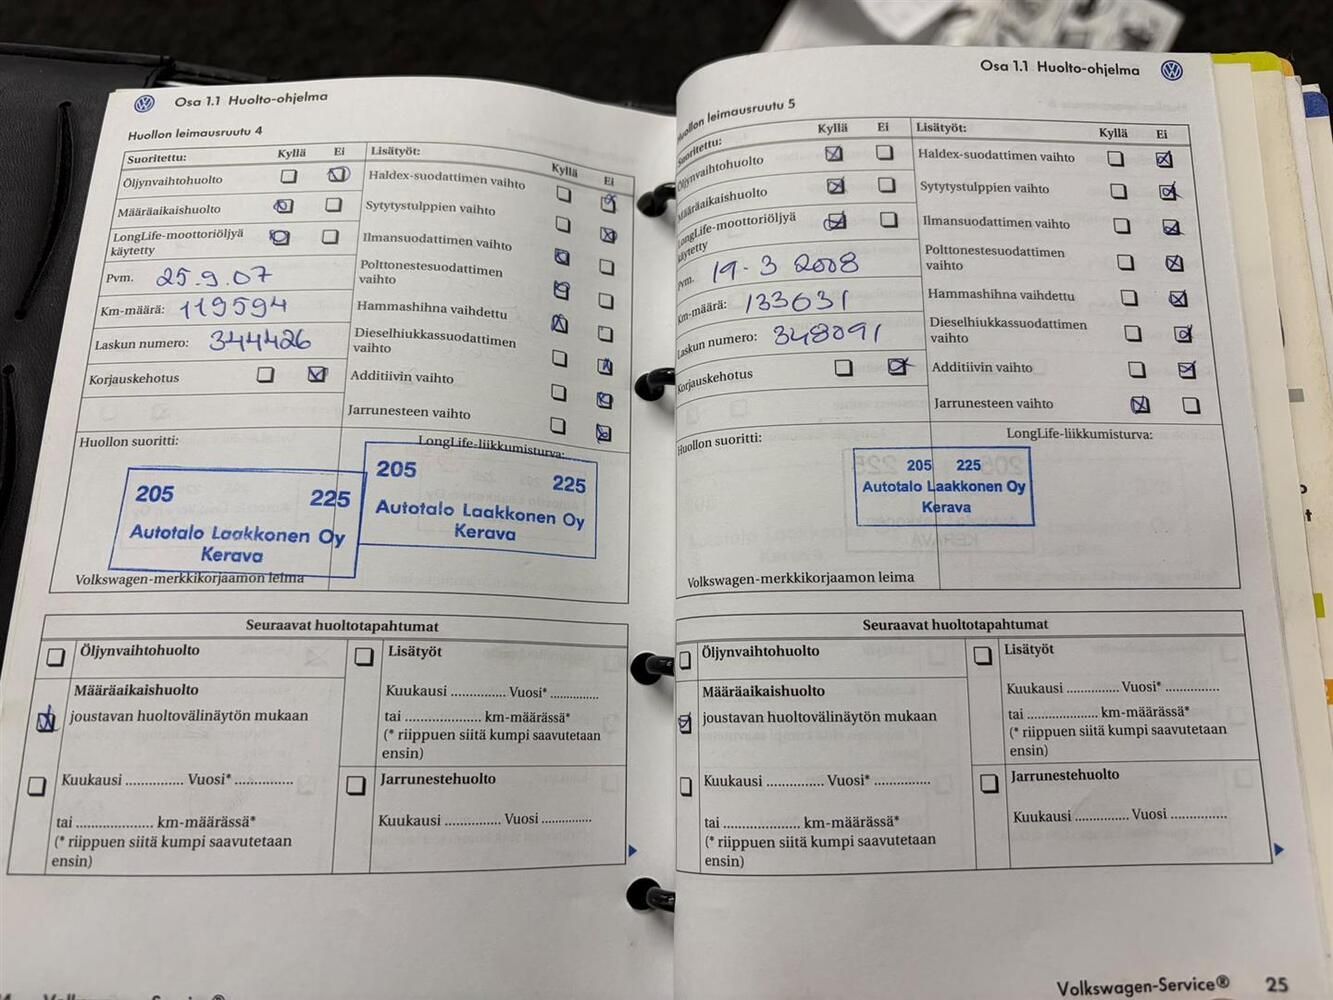 Osa 1.1 Huolto-ohjelma
Huollon leimausruutu 4
Suoritettu: Kyllä Ei
Öljynvaihtohuolto
Määräaikaishuolto
LongLife-moottoriöljyä
käytetty
Pvm. 25.9.07
Km-määrä: 119594
Laskun numero: 344426
Korjauskehotus
Lisätyöt: Kyllä Ei
Haldex-suodattimen vaihto
Sytytystulppien vaihto
Ilmansuodattimen vaihto
Polttonestesuodattimen
vaihto
Hammashihna vaihdettu
Dieselhiukkassuodattimen
vaihto
Additiivin vaihto
Jarrunesteen vaihto
Huollon suoritti:
LongLife-liikkumisturva:
205 225
Autotalo Laakkonen Oy
Kerava
205 225
Autotalo Laakkonen Oy
Kerava
Volkswagen-merkkikorjaamon leima
Seuraavat huoltotapahtumat
Öljynvaihtohuolto
Määräaikaishuolto
joustavan huoltovälinäytön mukaan
Kuukausi .............. Vuosi* ..............
tai .................... km-määrässä*
(* riippuen siitä kumpi saavutetaan
ensin)
Lisätyöt
Kuukausi .............. Vuosi* ..............
tai .................... km-määrässä*
(* riippuen siitä kumpi saavutetaan
ensin)
Jarrunestehuolto
Kuukausi .............. Vuosi ..............
Osa 1.1 Huolto-ohjelma
Huollon leimausruutu 5
Suoritettu: Kyllä Ei
Öljynvaihtohuolto
Määräaikaishuolto
LongLife-moottoriöljyä
käytetty
Pvm. 19.3 2008
Km-määrä: 133631
Laskun numero: 348091
Korjauskehotus
Lisätyöt: Kyllä Ei
Haldex-suodattimen vaihto
Sytytystulppien vaihto
Ilmansuodattimen vaihto
Polttonestesuodattimen
vaihto
Hammashihna vaihdettu
Dieselhiukkassuodattimen
vaihto
Additiivin vaihto
Jarrunesteen vaihto
Huollon suoritti:
LongLife-liikkumisturva:
205 225
Autotalo Laakkonen Oy
Kerava
Volkswagen-merkkikorjaamon leima
Seuraavat huoltotapahtumat
Öljynvaihtohuolto
Määräaikaishuolto
joustavan huoltovälinäytön mukaan
Kuukausi .............. Vuosi* ..............
tai .................... km-määrässä*
(* riippuen siitä kumpi saavutetaan
ensin)
Lisätyöt
Kuukausi .............. Vuosi* ..............
tai .................... km-määrässä*
(* riippuen siitä kumpi saavutetaan
ensin)
Jarrunestehuolto
Kuukausi .............. Vuosi ..............
Volkswagen-Service® 25